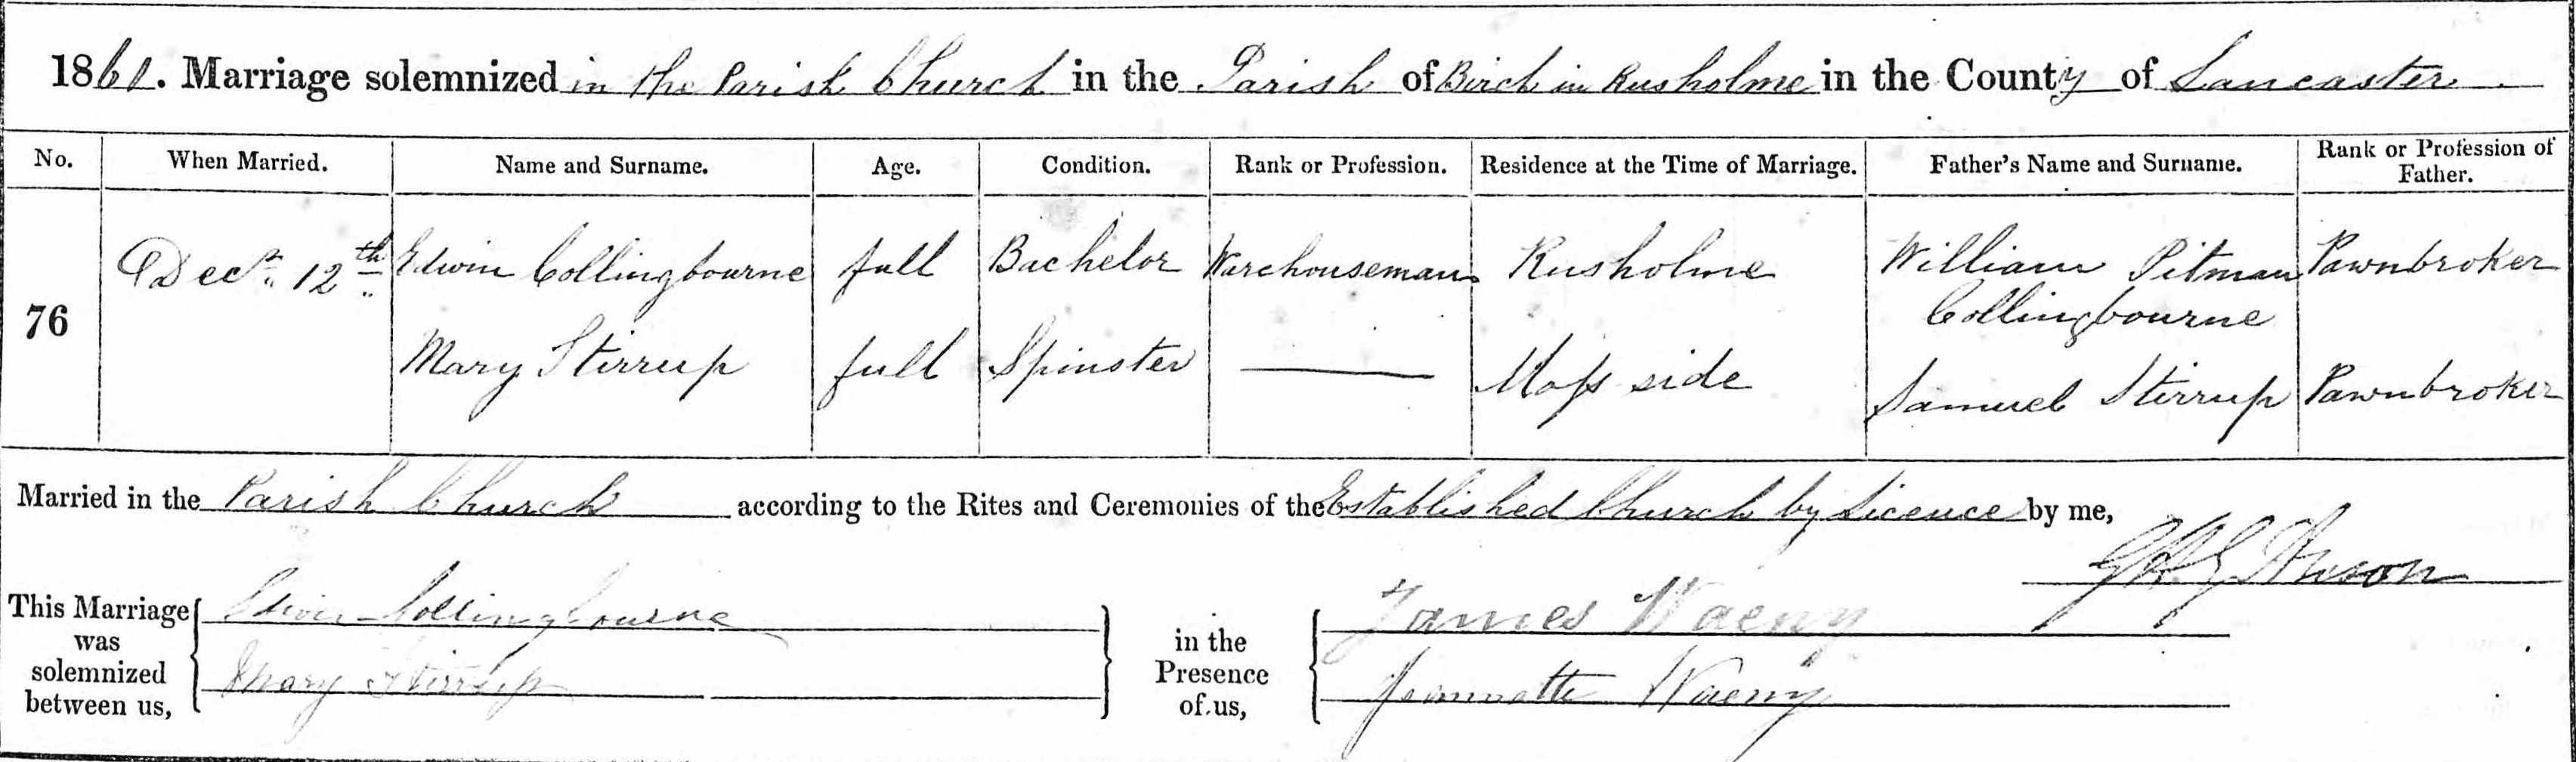 1861. Marriage solemnized in the Parish Church in the Parish of Birch in Rusholme in the County of Lancaster.
No. When Married. Name and Surname. Age. Condition. Rank or Profession. Residence at the Time of Marriage. Father's Name and Surname. Rank or Profession of Father.
76 Decr. 12th Edwin Collingbourne full Bachelor Warehouseman Rusholme William Pitman Collingbourne Pawnbroker
Mary Stirrup full Spinster Moss side Samuel Stirrup Pawnbroker
Married in the Parish Church according to the Rites and Ceremonies of the Established Church by Licence by me,
G H G Anson
This Marriage was solemnized between us,
Edwin Collingbourne
Mary Stirrup
in the Presence of us,
James Waeny
Jeannette Waeny